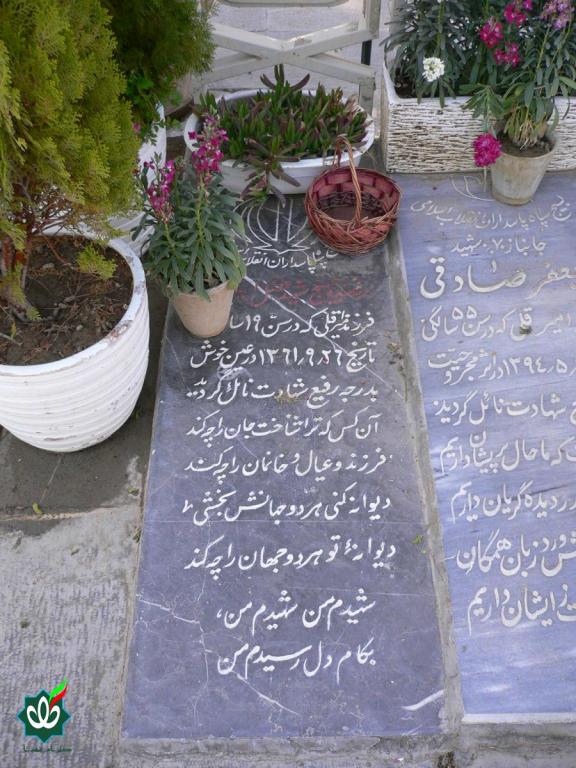 پاسداران انقلاب
فرزند نظر قلی که در سن ۱۹ سا
تاریخ ۱۳۶۱٫۹٫۲۶ در عین خوش
بدرجه رفیع شهادت نائل گردید
آن کس که ترا شناخت جان را چه کند
فرزند و عیال و خانمان را چه کند
دیوانه کنی هر دو جهانش بخشی
دیوانهٔ تو هر دو جهان را چه کند
شهیدم من شهیدم من،
بکام دل رسیدم من
سپاه پاسداران انقلاب اسلامی
جانباز ۷۰٪ شهید
جعفر صادقی
امیر قلی که در سن ۵۵ سالگی
۱۳۹۴٫۵٫ در اثر مجروحیت
شهادت نائل گردید
که ما حال پریشان داریم
دیده گریان داریم
ورد زبان همگان
ایشان داریم